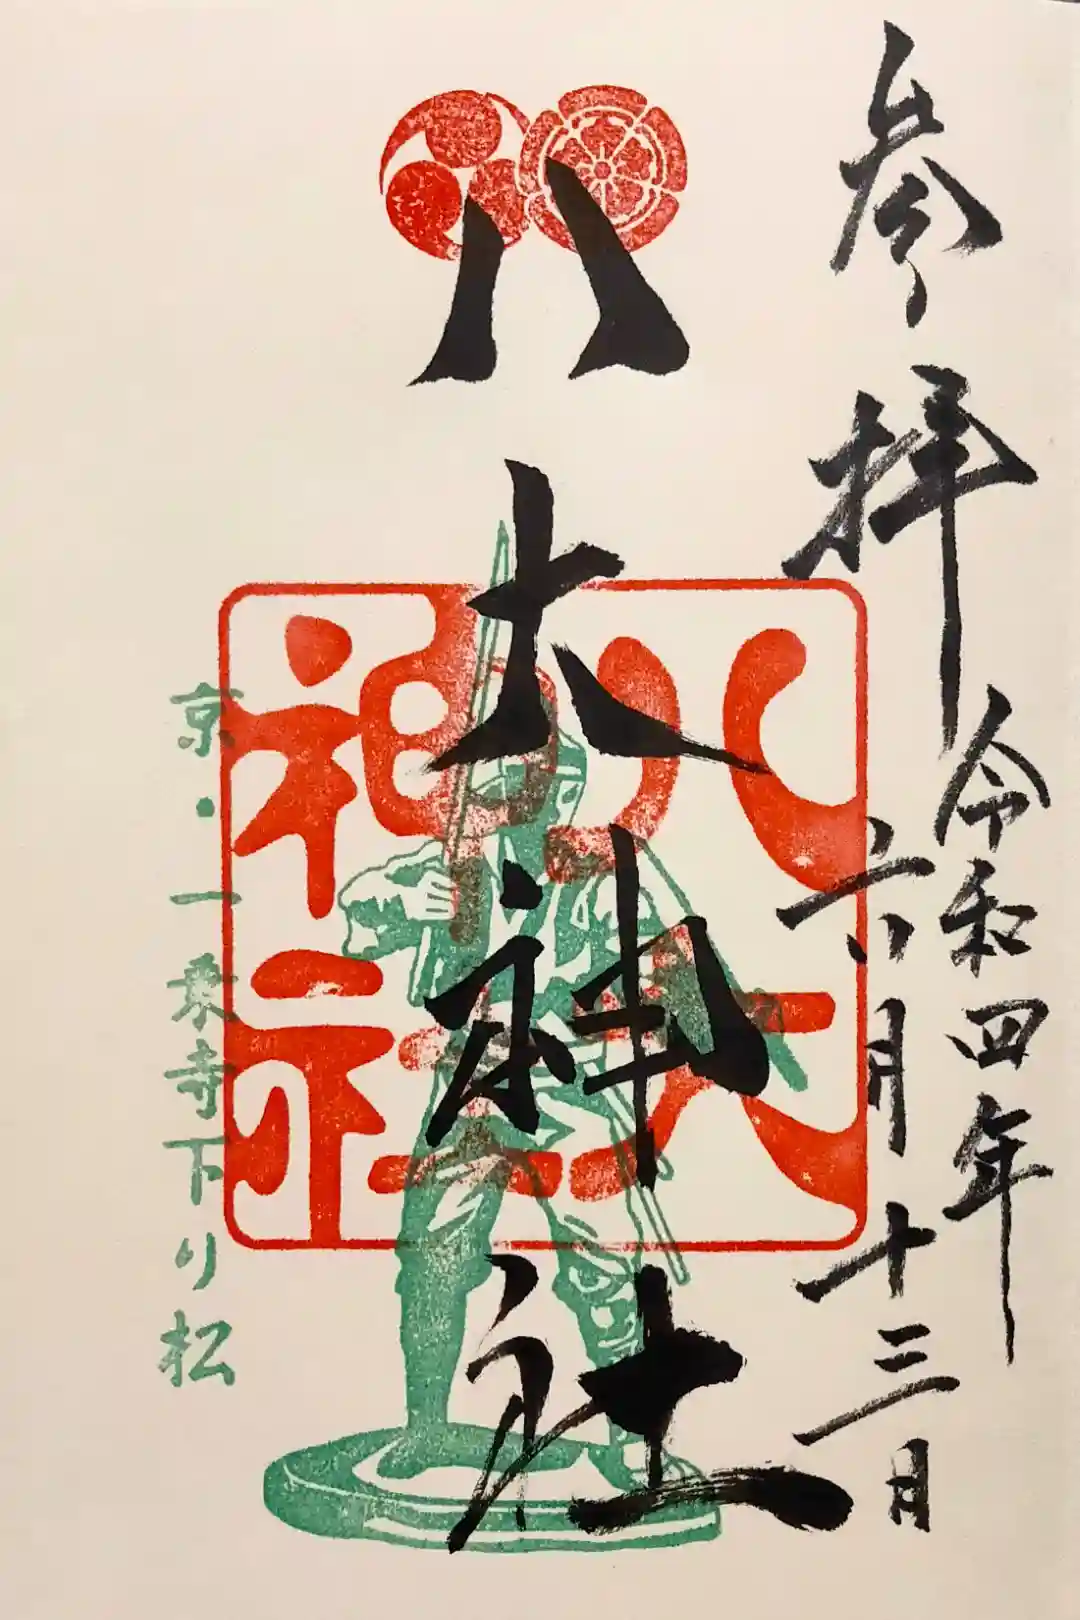 参拝
令和四年
六月十三日
八大神社
八大
神社
京・一乗寺下り松